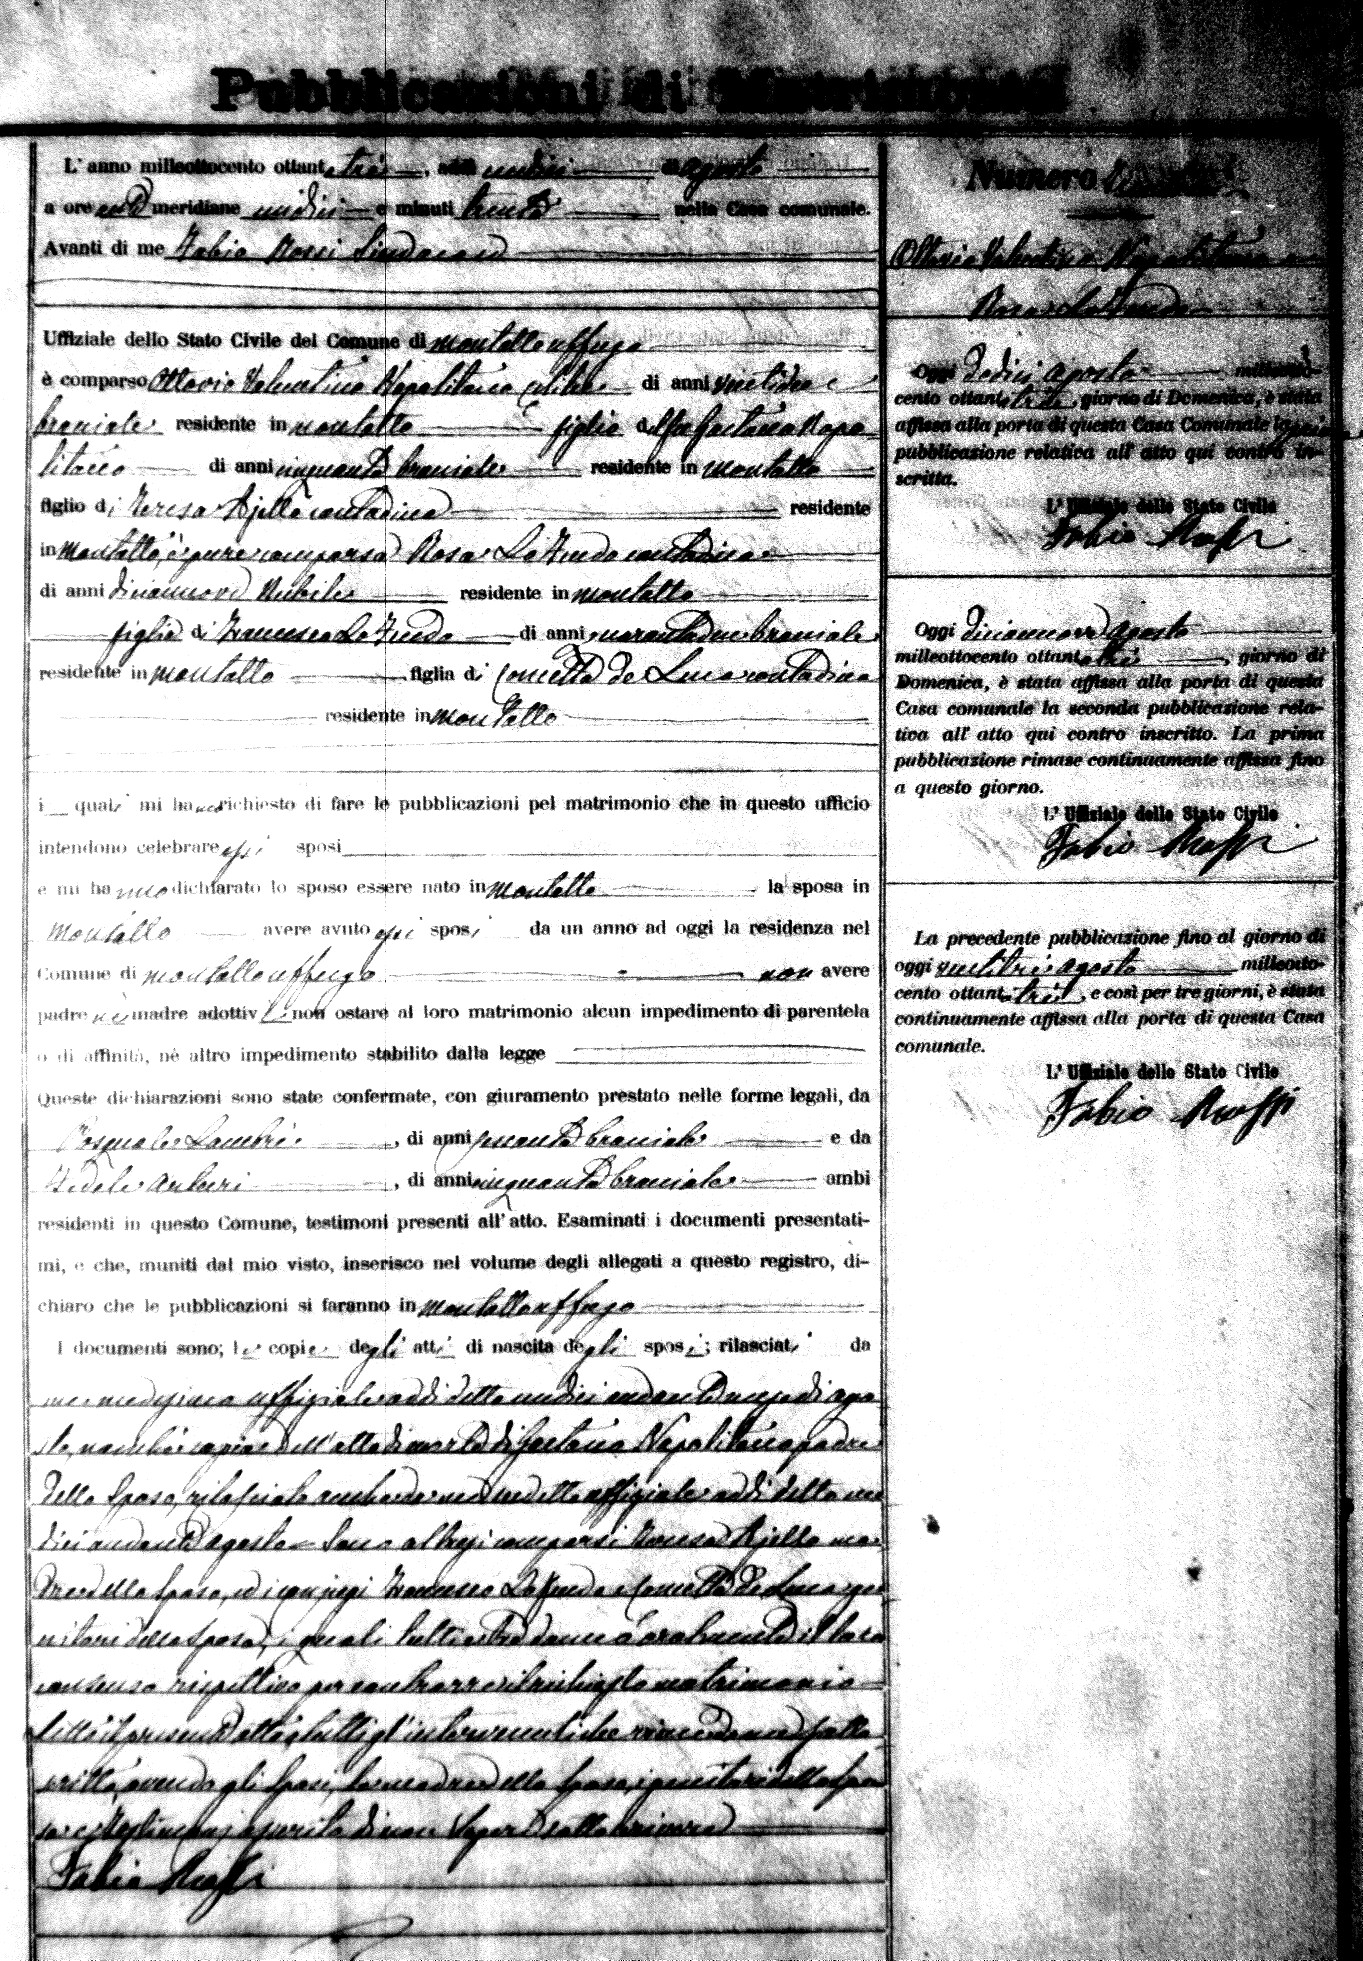 Pubblicazioni di Matrimonio
L'anno milleottocento ottantatrè, addì undici di agosto
a ore anti meridiane undici e minuti trenta nella Casa comunale.
Avanti di me Fabio Rossi Sindaco
Uffiziale dello Stato Civile del Comune di Montalto Uffugo
è comparso Ottavio Valentino Napolitano celibe di anni ventidue
bracciale residente in Montalto figlio del fu Gaetano Napo
litano di anni cinquanta bracciale residente in Montalto
figlio di Teresa Ajello contadina residente
in Montalto, è pure comparsa Rosa Lo Feudo contadina
di anni diciannove Nubile residente in Montalto
figlia di Francesco Lo Feudo di anni quarantadue bracciale
residente in Montalto figlia di Concetta de Luca contadina
residente in Montalto
i quali mi hanno richiesto di fare le pubblicazioni pel matrimonio che in questo ufficio
intendono celebrare essi sposi
e mi hanno dichiarato lo sposo essere nato in Montalto la sposa in
Montalto avere avuto essi sposi da un anno ad oggi la residenza nel
Comune di Montalto Uffugo non avere
padre nè madre adottivi, non ostare al loro matrimonio alcun impedimento di parentela
o di affinità, nè altro impedimento stabilito dalla legge
Queste dichiarazioni sono state confermate, con giuramento prestato nelle forme legali, da
Pasquale, di anni bracciale e da
Fedele, di anni cinquanta bracciale ambi
residenti in questo Comune, testimoni presenti all'atto. Esaminati i documenti presentati-
mi, e che, muniti dal mio visto, inserisco nel volume degli allegati a questo registro, di-
chiaro che le pubblicazioni si faranno in Montalto Uffugo
I documenti sono; le copie degli atti di nascita degli sposi; rilasciati da
me medesimo uffiziale addì detto undici andante mese di ago
sto, nonchè copia dell'atto di morte di Gaetano Napolitano padre
dello sposo, rilasciata anche da me medetto uffiziale addì detto un
dici andante agosto. Sono altresì comparsi Teresa Ajello ma
dre dello sposo, ed i conjugi Francesco Lo Feudo e Concetta de Luca ge
nitori della sposa, i quali tutti e tre danno oralmente il loro
consenso rispettivo per contrarre il richiesto matrimonio
Letto il presente atto a tutti gl'intervenuti
scritto, avendo gli sposi, la madre dello sposo, i genitori della spo
sa e testimonj asserito di non sapere sottoscrivere
Fabio Rossi
Numero
Ottavio Valentino Napolitano e
Rosa Lo Feudo
Oggi dodici agosto milleotto-
cento ottantatrè, giorno di Domenica, è stata
affissa alla porta di questa Casa Comunale la prima
pubblicazione relativa all'atto qui contro in-
scritta.
L'Uffiziale dello Stato Civile
Fabio Rossi
Oggi diciannove agosto
milleottocento ottantatrè, giorno di
Domenica, è stata affissa alla porta di questa
Casa comunale la seconda pubblicazione rela-
tiva all'atto qui contro inscritto. La prima
pubblicazione rimase continuamente affissa fino
a questo giorno.
L'Uffiziale dello Stato Civile
Fabio Rossi
La precedente pubblicazione fino al giorno di
oggi ventitrè agosto milleotto-
cento ottantatrè, e così per tre giorni, è stata
continuamente affissa alla porta di questa Casa
comunale.
L'Uffiziale dello Stato Civile
Fabio Rossi